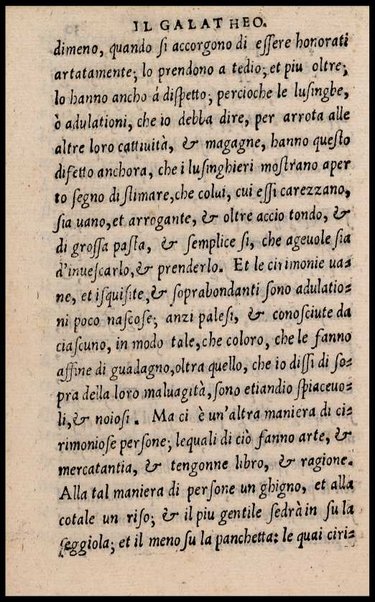 IL GALATHEO.
dimeno, quando ſi accorgono di eſſere honorati
artatamente; lo prendono a tedio; et piu oltre;
lo hanno ancho à diſpetto; percioche le luſinghe,
ò adulationi, che io debba dire, per arrota alle
altre loro cattiuità, & magagne, hanno queſto
difetto anchora, che i luſinghieri moſtrano aper
to ſegno di ſtimare,che colui, cui eſſi carezzano,
ſia uano,et arrogante, & oltre accio tondo, &
di groſſa paſta, & ſemplice ſi, che ageuole ſia
d'inueſcarlo,& prenderlo. Et le cirimonie ua-
ne, et iſquiſite,& ſoprabondanti ſono adulatio-
ni poco naſcoſe; anzi paleſi, & conoſciute da
ciaſcuno, in modo tale,che coloro, che le fanno
affine di guadagno,oltra quello, che io diſſi di ſo-
pra della loro maluagità,ſono etiandio ſpiaceuo-
li,& noioſi. Ma ci è un'altra maniera di ci-
rimonioſe perſone; lequali di ciò fanno arte, &
mercatantia, & tengonne libro, & ragione.
Alla tal maniera di perſone un ghigno, et alla
cotale un riſo; & il piu gentile ſedrà in ſu la
ſeggiola; et il meno ſu la panchetta: le quai ciri-